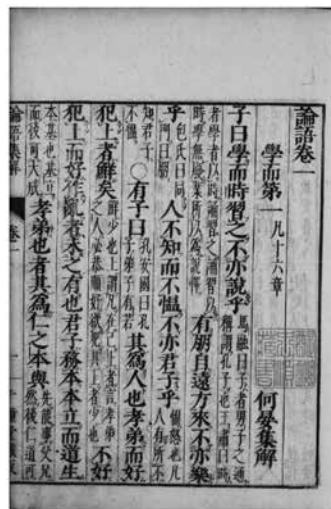 論語卷一
學而第一 凡十六章 何晏集解
子曰學而時習之不亦說乎 馬融曰子者男子之通稱謂孔子也王肅曰時
者學者以時誦習之誦習以時學無廢業所以為說懌 有朋自遠方來不亦樂
乎 包氏曰同門曰朋 人不知而不慍不亦君子乎 慍怒也凡人有所不
知君子不慍 ○有子曰 孔安國曰孔子弟子有若 其為人也孝弟而好
犯上者鮮矣 鮮少也上謂凡在己上者言孝弟之人必恭順好欲犯其上者少也 不好
犯上而好作亂者未之有也君子務本本立而道生
本基也基立而後可大成 孝弟也者其為仁之本與 先能事父兄然後仁道可
論語集解 卷一